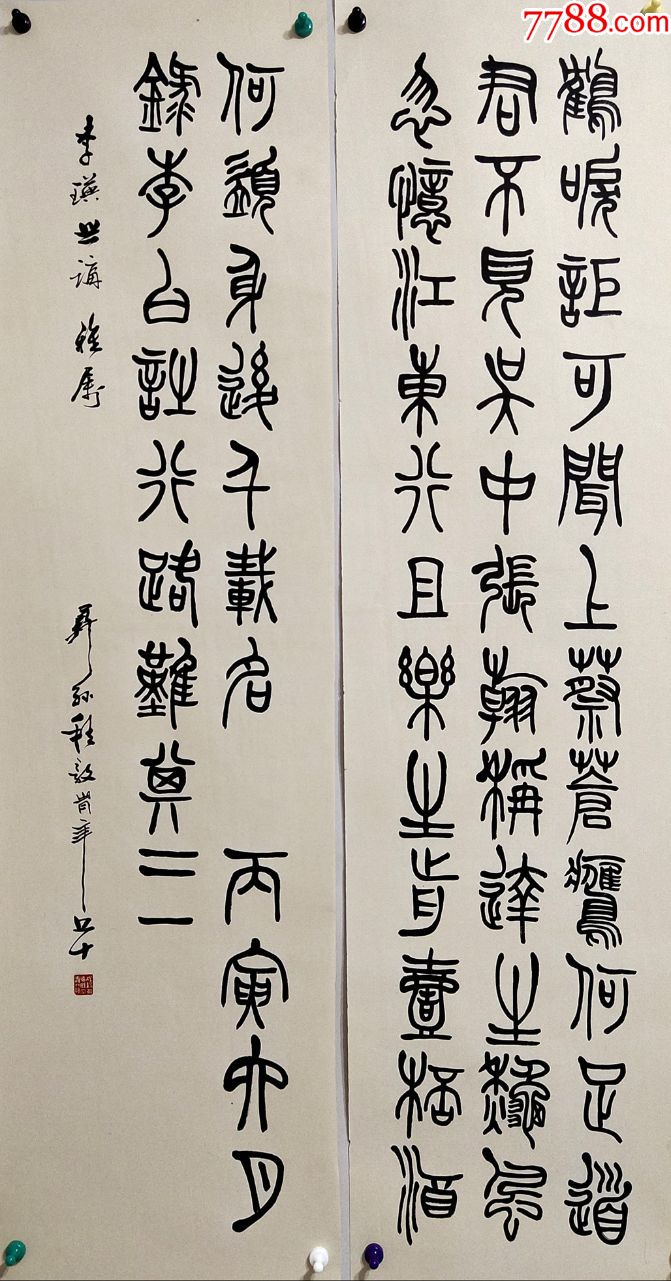 7788.com
鶴唳詎可聞上蔡蒼鷹何足道
君不見吳中張翰稱達生秋風
忽憶江東行且樂生前壹桮酒
何須身後千載名 丙寅六月
錄李白詩行路難其三
李瑛世講雅屬